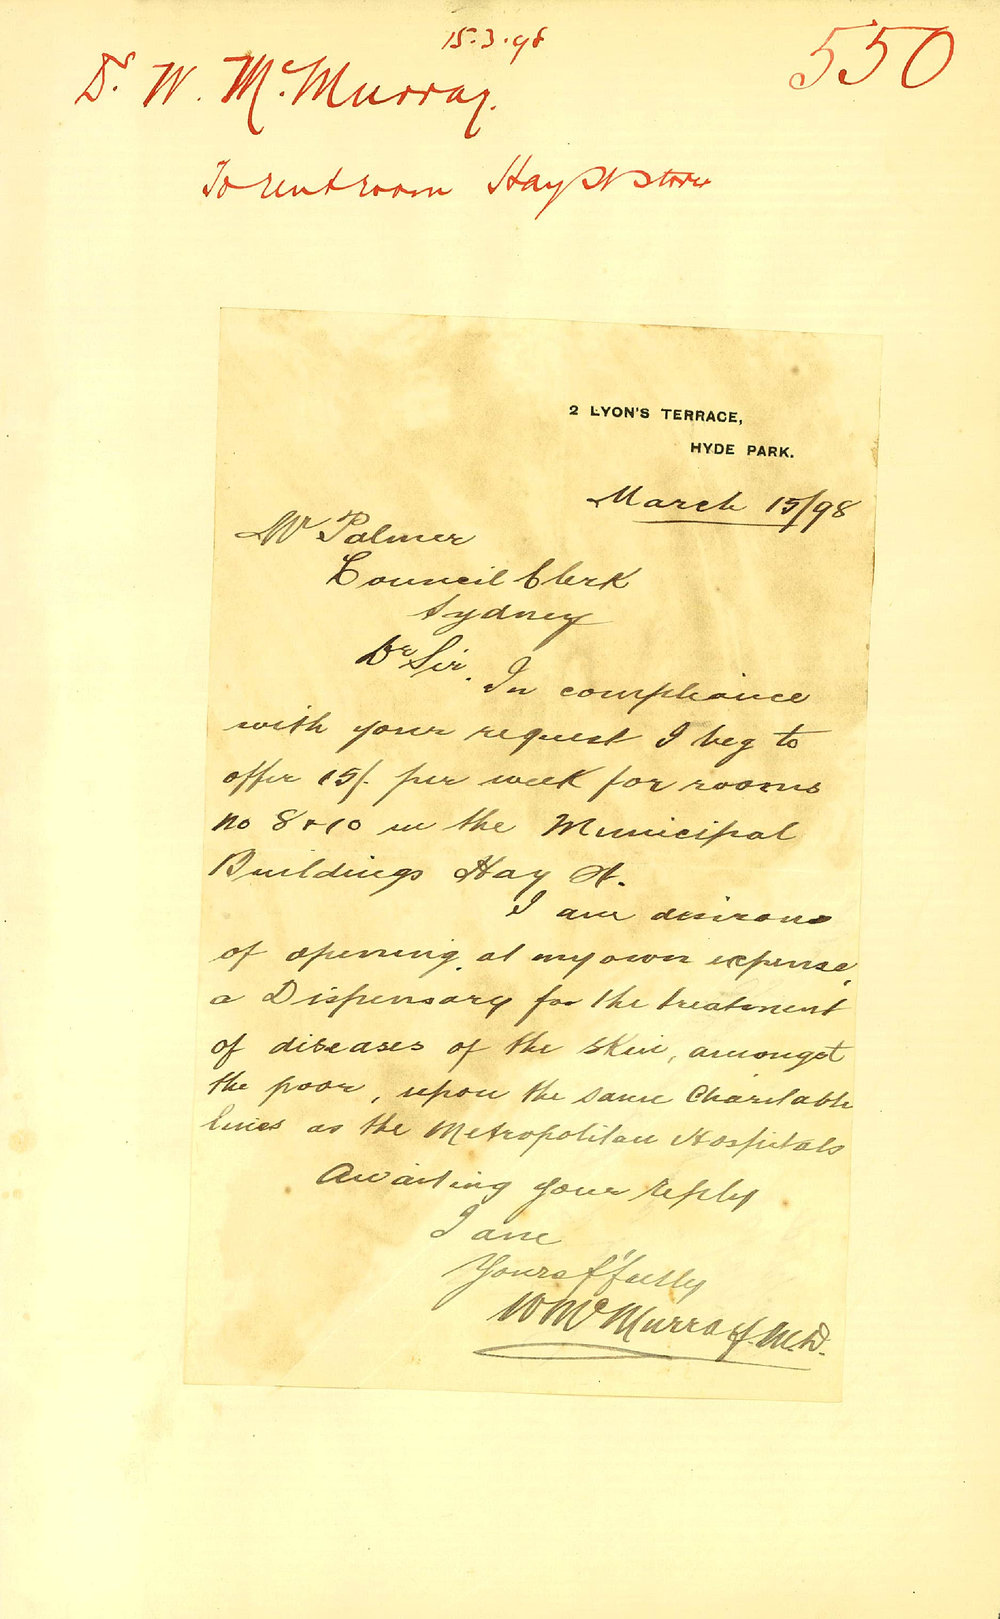 15.3.98
550
Dr. W. McMurray.
To rent room Hay St store
2 LYON'S TERRACE,
HYDE PARK.
March 15/98
Mr Palmer
Council Clerk
Sydney
Dr Sir.
In compliance
with your request I beg to
offer 15/- per week for rooms
no 8 & 10 in the Municipal
Buildings Hay St.
I am desirous
of opening, at my own expense,
a Dispensary for the treatment
of diseases of the skin, amongst
the poor, upon the same Charitable
lines as the Metropolitan Hospitals
Awaiting your reply
I am
Yours f'fully
W McMurray. M.D.